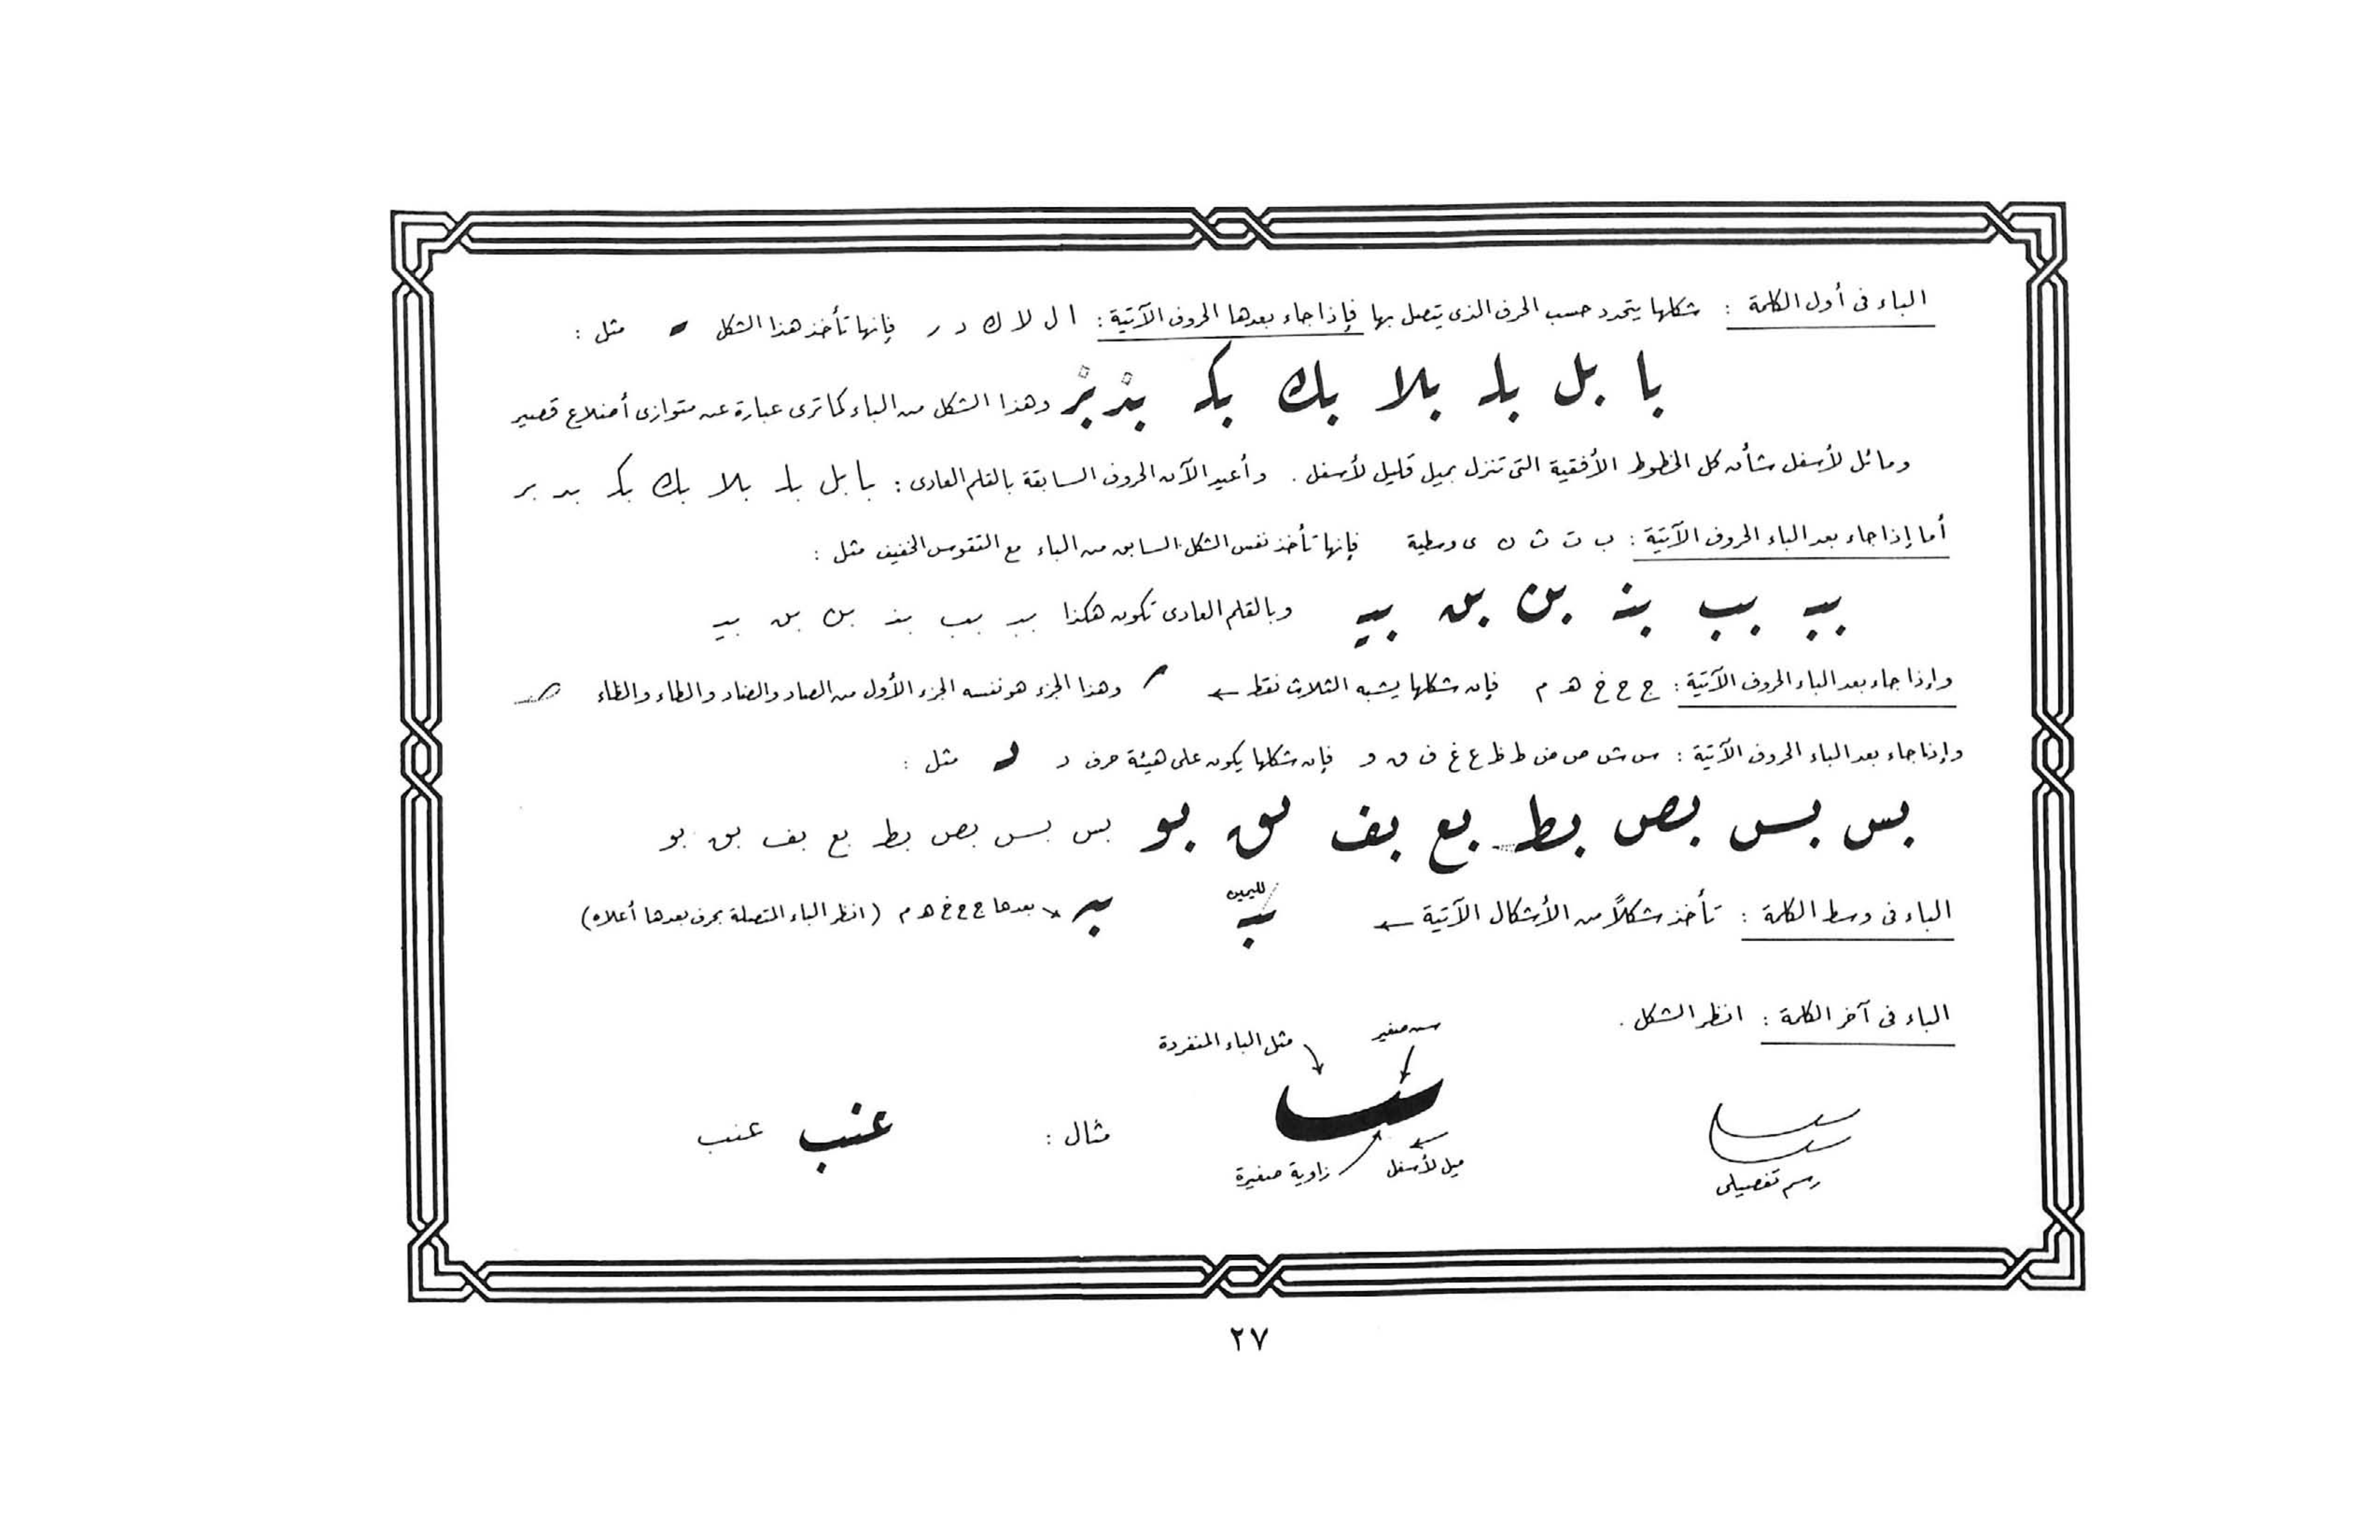 الباء فى أول الكلمة : شكلها يتحدد حسب الحرف الذى يتصل بها فإذا جاء بعدها الحروف الآتية : ا ل لا ك د ر فإنها تأخذ هذا الشكل مثل :
با بل بلـ بلا بك بكـ بد بر وهذا الشكل من الباء كما ترى عبارة عن متوازى أضلاع قصير
ومائل لأسفل شأن كل الخطوط الأفقية التى تنزل بميل قليل لأسفل . وأعيد الآن الحروف السابقة بالقلم العادى : با بل بلـ بلا بك بكـ بد بر
أما إذا جاء بعد الباء الحروف الآتية : ب ت ث ن ى وسطية فإنها تأخذ نفس الشكل السابق من الباء مع التقوس الخفيف مثل :
ببـ بب بنـ بن بن بيـ وبالقلم العادى تكون هكذا ببـ بب بنـ بن بن بيـ
وإذا جاء بعد الباء الحروف الآتية : ج ح خ هـ م فإن شكلها يشبه الثلاث نقط وهذا الجزء هو نفسه الجزء الأول من الصاد والضاد والطاء والظاء صـ
وإذا جاء بعد الباء الحروف الآتية : س ش ص ض ط ظ ع غ ف ق و فإن شكلها يكون على هيئة حرف د مثل :
بس بس بص بط بع بف بق بو بس بس بص بط بع بف بق بو
لليمين
الباء فى وسط الكلمة : تأخذ شكلاً من الأشكال الآتية ـبـ ـبـ بعدها ج ح خ هـ م (انظر الباء المتصلة بحرف بعدها أعلاه)
الباء فى آخر الكلمة : انظر الشكل .
سن صغير
مثل الباء المنفردة
مثال : عنب عنب
ميل لأسفل
زاوية صغيرة
رسم تفصيلى
٢٧